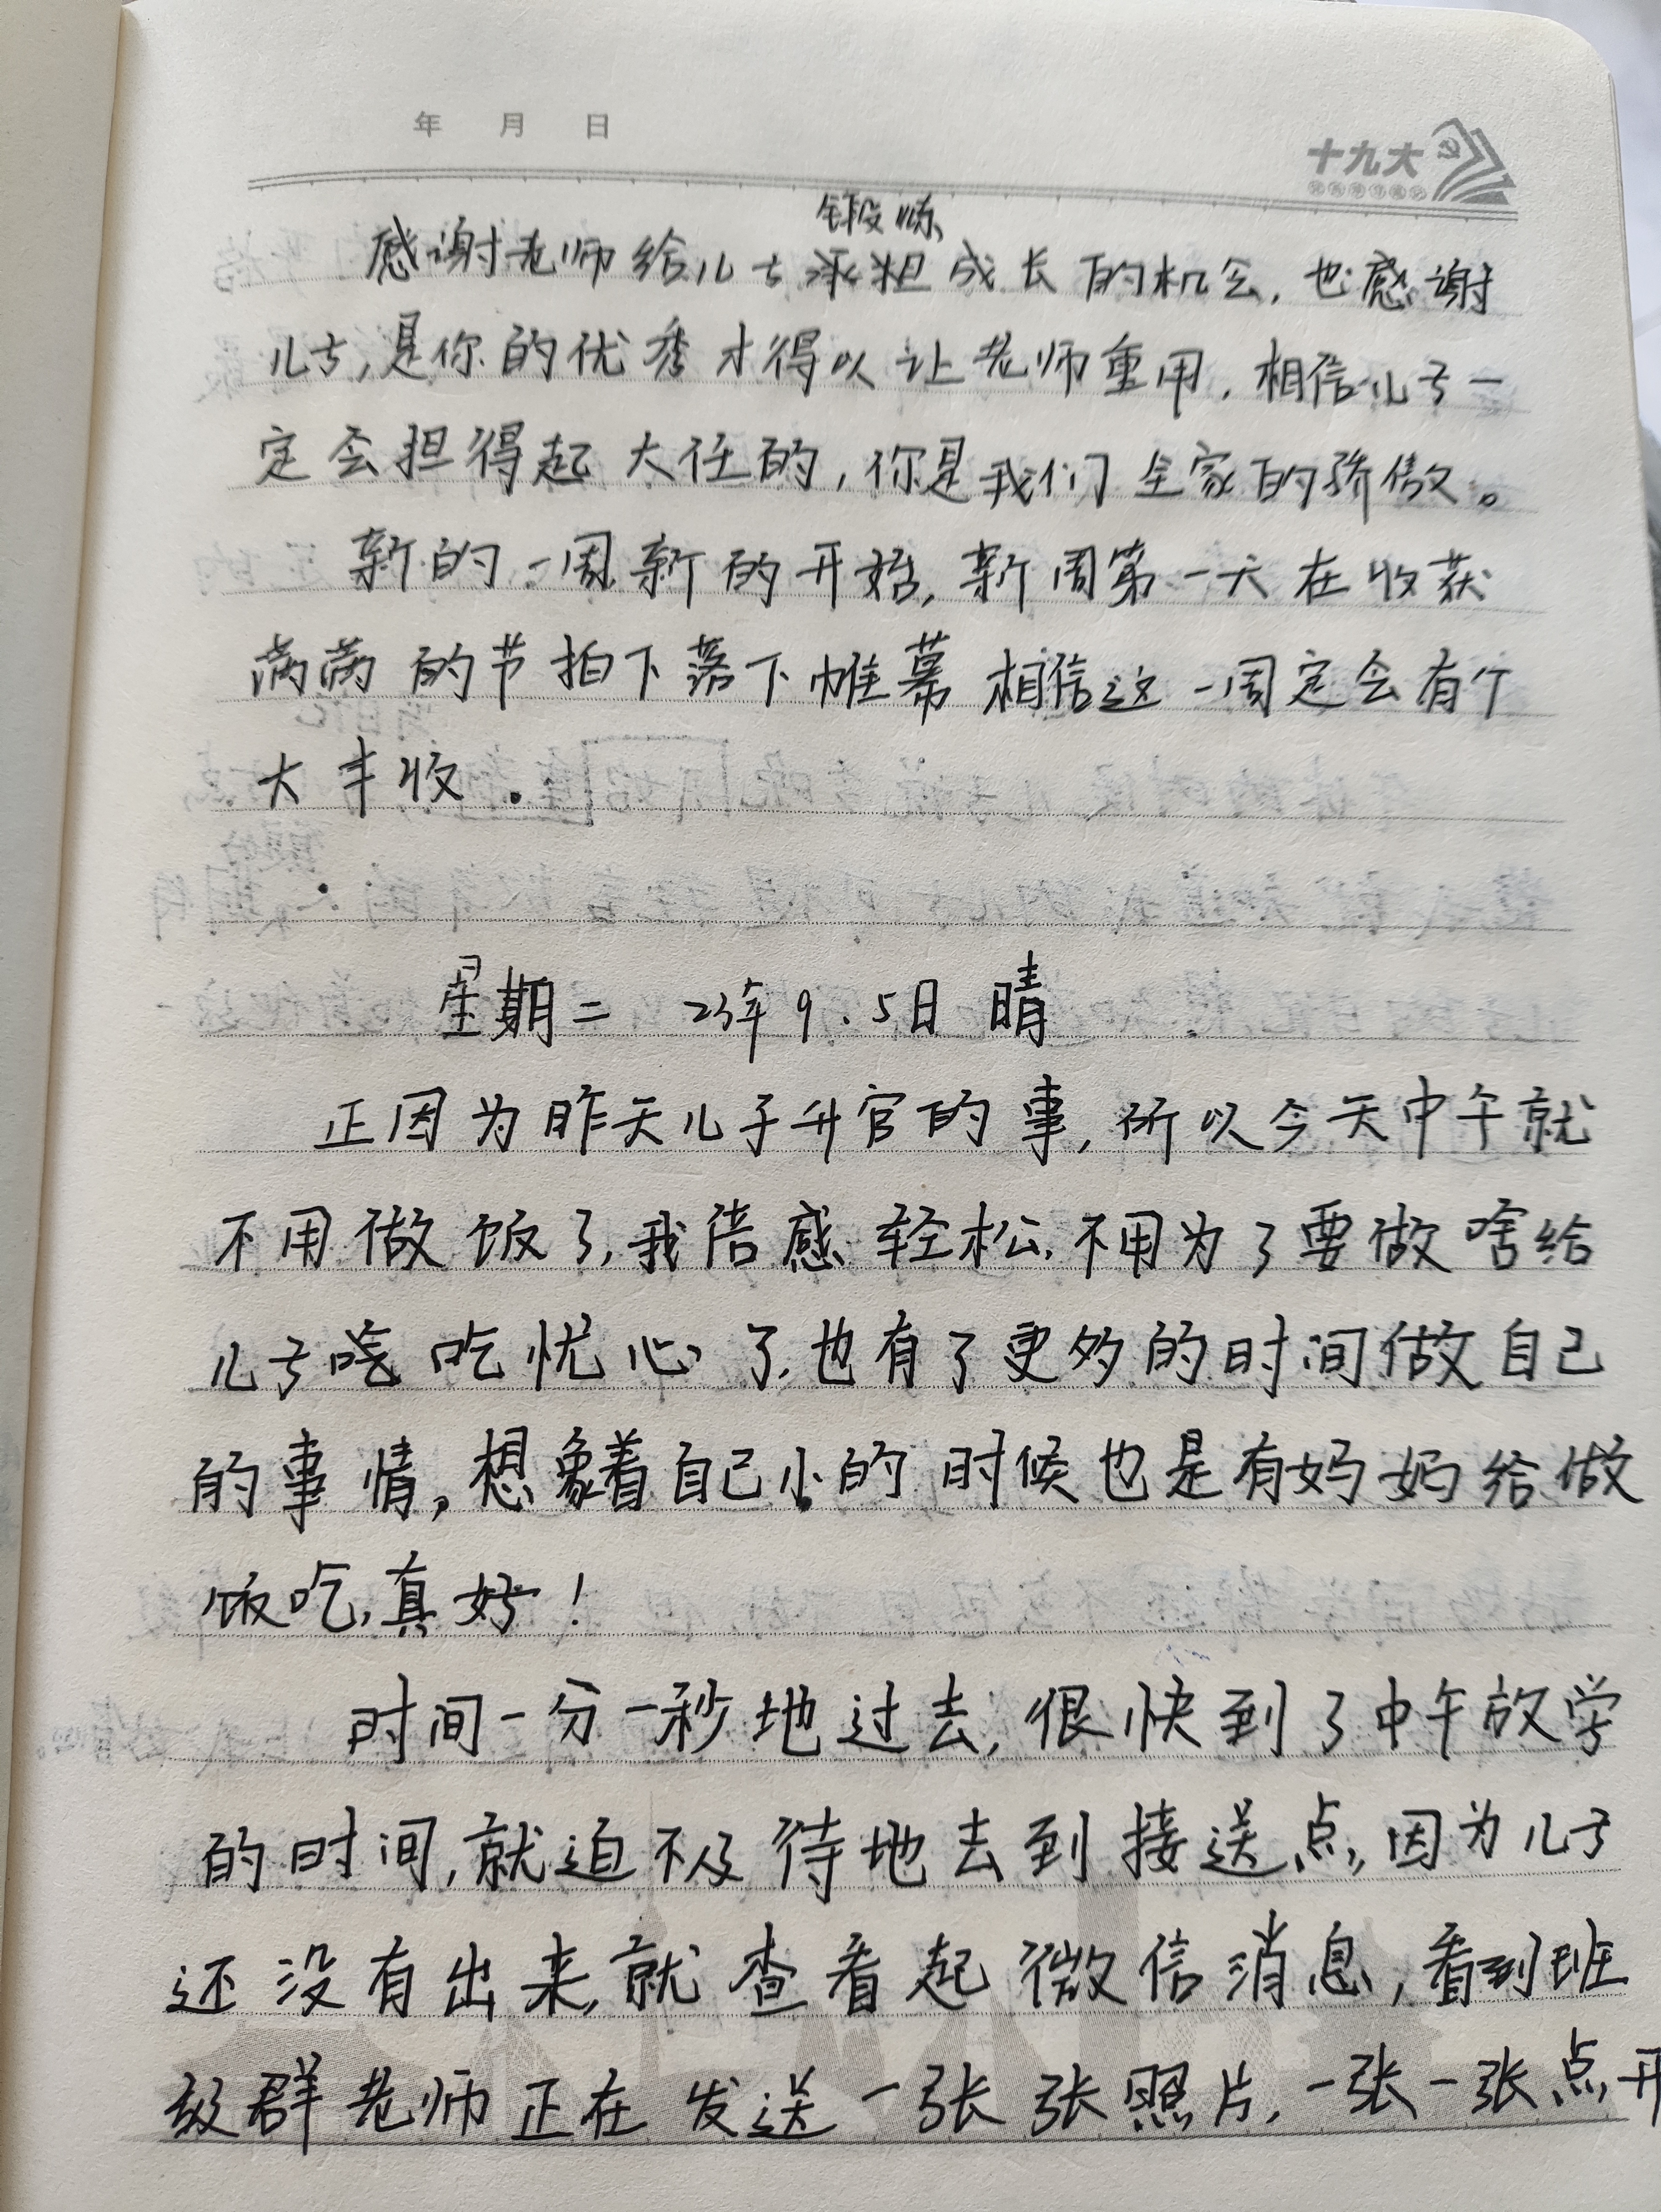 年 月 日
十九大
锻炼
感谢老师给儿子承担成长的机会,也感谢
儿子,是你的优秀才得以让老师重用,相信儿子一
定会担得起大任的,你是我们全家的骄傲。
新的一周,新的开始,新周第一天在收获
满满的节拍下落下帷幕 相信这一周定会有个
大丰收.
星期二 23年9.5日 晴
正因为昨天儿子升官的事,所以今天中午就
不用做饭了,我倍感轻松,不用为了要做啥给
儿子吃吃忧心了,也有了更多的时间做自己
的事情,想象着自己小的时候也是有妈妈给做
饭吃,真好!
时间一分一秒地过去,很快到了中午放学
的时间,就迫不及待地去到接送点,因为儿子
还没有出来,就查看起微信消息,看到班
级群老师正在发送一张张照片,一张一张点开